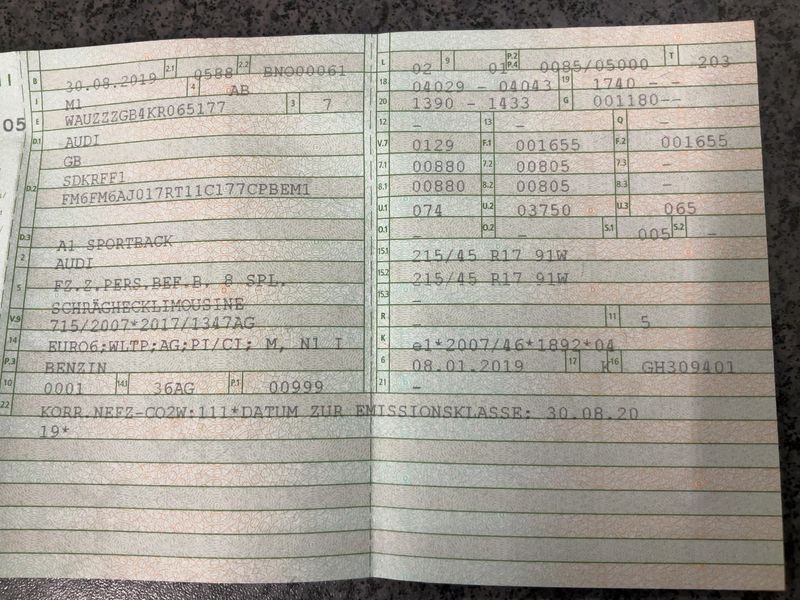 05
B 30.08.2019 2.1 0588 2.2 BNO00061
J M1 4 AB
E WAUZZZGB4KR065177 3 7
D.1 AUDI
GB
D.2 SDKRFF1
FM6FM6AJ017RT11C177CPBEM1
D.3 A1 SPORTBACK
2 AUDI
5 FZ.Z.PERS.BEF.B. 8 SPL.
SCHRÄGHECKLIMOUSINE
V.9 715/2007*2017/1347AG
14 EURO6;WLTP;AG;PI/CI; M, N1 I
P.3 BENZIN
10 0001 14.1 36AG P.1 00999
22 KORR.NEFZ-CO2W:111*DATUM ZUR EMISSIONSKLASSE: 30.08.20
19*
L 02 9 01 P.2 P.4 0085/05000 T 203
18 04029 - 04043 19 1740 - -
20 1390 - 1433 G 001180--
12 - 13 - Q -
V.7 0129 F.1 001655 F.2 001655
7.1 00880 7.2 00805 7.3 -
8.1 00880 8.2 00805 8.3 -
U.1 074 U.2 03750 U.3 065
O.1 - O.2 - S.1 005 S.2 -
15.1 215/45 R17 91W
15.2 215/45 R17 91W
15.3 -
R - 11 5
K e1*2007/46*1892*04
6 08.01.2019 17 K 16 GH309401
21 -